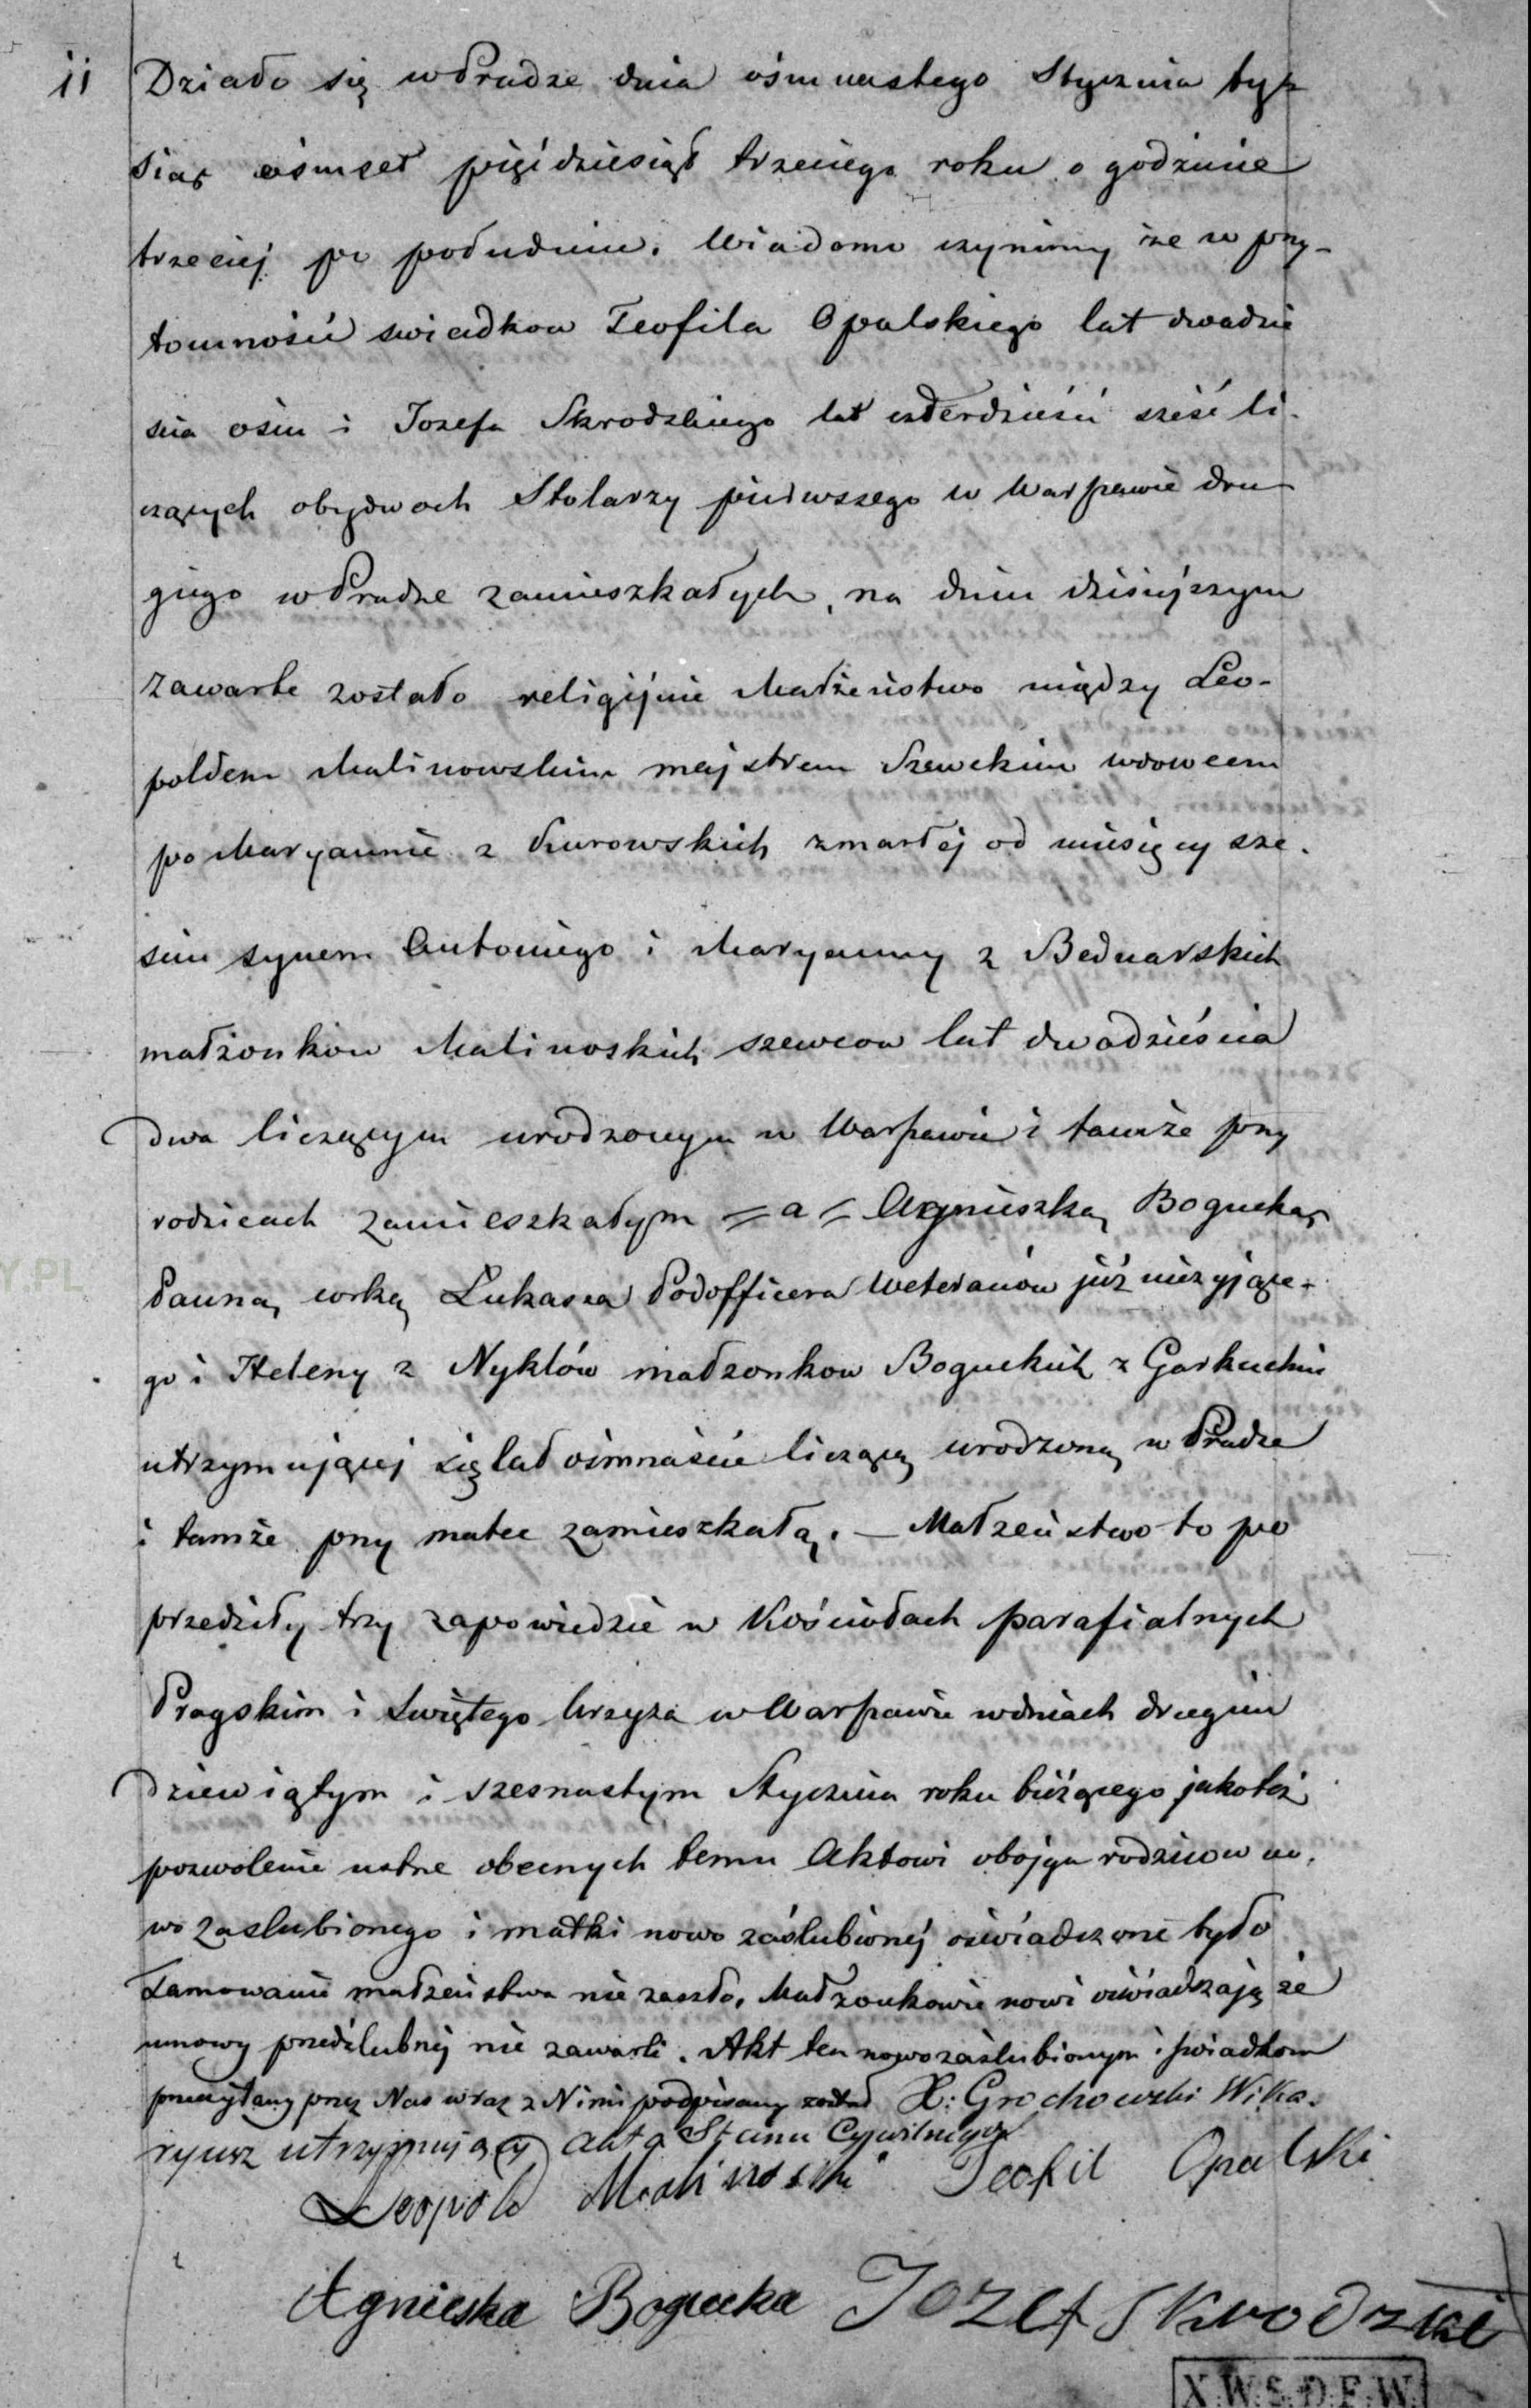 11 Działo się w Pradze dnia ośmnastego Stycznia tyś
siąc ośmset pięćdziesiąt trzeciego roku o godzinie
trzeciej po południu. Wiadomo czynimy że w przy-
tomności swiadkow Teofila Opalskiego lat dwadzie
scia ośm i Jozefa Skrodzkiego lat czterdzieści sześć li-
czących obydwoch Stolarzy pierwszego w Warszawie dru
giego w Pradze zamieszkałych, na dniu dzisiejszym
zawarte zostało religijnie Małżeństwo między Leo-
poldem Malinowskim majstrem Szewckim wdowcem
po Maryannie z Kurowskich zmarłej od miesięcy sze-
ściu synem Antoniego i Maryanny z Bednarskich
małżonkow Malinoskich szewcow lat dwadzieścia
dwa liczącym urodzonym w Warszawie i tamże przy
rodzicach zamieszkałym = a = Agnieszką Bogucką
Panną corką Łukasza Podofficera Weteranów już nieżyjące-
go i Heleny z Nyklów małżonkow Boguckich z Garkuchni
utrzymującej się lat ośmnaście liczącą urodzoną w Pradze
i tamże przy matce zamieszkałą. — Małżeństwo to po
przedziły trzy zapowiedzie w Kościołach parafialnych
Pragskim i Świętego Krzyża w Warszawie w dniach drugim
dziewiątym i szesnastym Stycznia roku bieżącego jakoteż
pozwolenie ustne obecnych temu Aktowi obojga rodzicow no-
wo zaslubionego i matki nowo zaślubionej oświadczone było
Tamowanie małżeństwa nie zaszło. Małżonkowie nowi oświadczają że
umowy przedślubnej nie zawarli. Akt ten nowozaślubionym i świadkom
przeczytany przez Nas wraz z Nimi podpisany został X: Grochowski Wika-
ryusz utrzymujący Akta Stanu Cywilnego
Leopold Malinoski Teofil Opalski
Agnieska Bogucka Jozef Skrodzki
X.W.S.D.F.W.
Y.PL